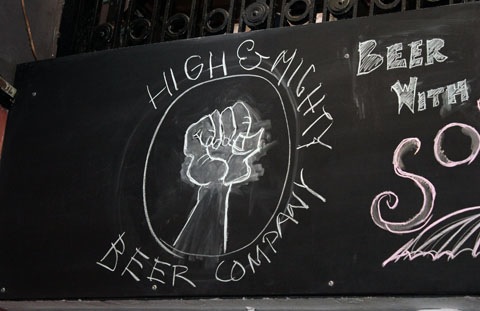 HIGH & MIGHTY
BEER COMPANY
BEER
WITH
SO